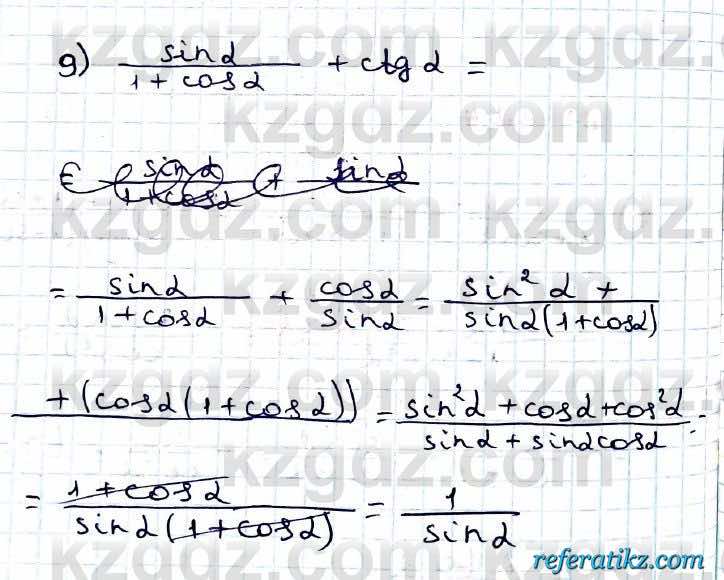 g) sinα / (1 + cosα) + ctgα =
= sinα / (1 + cosα) + cosα / sinα = sin²α + / sinα(1 + cosα)
+ (cosα(1 + cosα)) = sin²α + cosα + cos²α / sinα + sinαcosα =
= 1 + cosα / sinα(1 + cosα) = 1 / sinα
kzgdz.com
referatikz.com